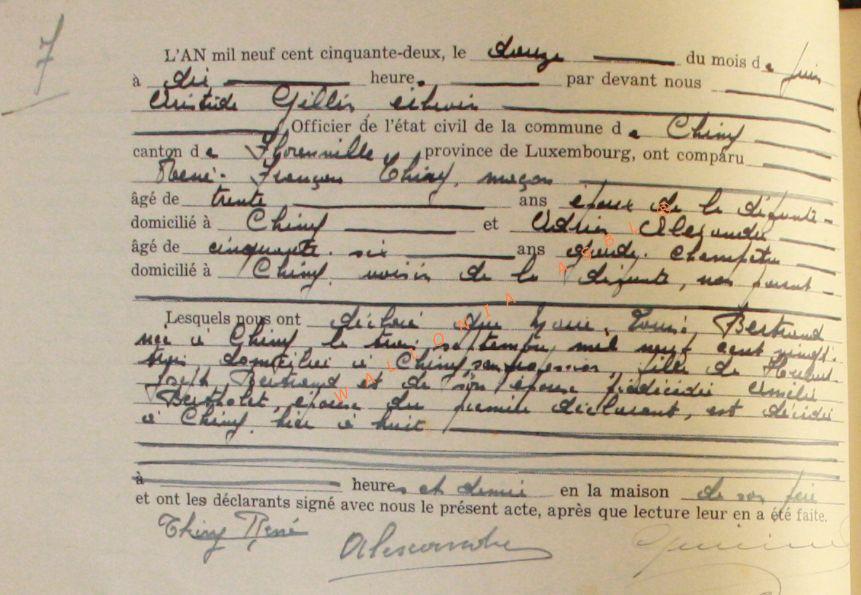 7
L'AN mil neuf cent cinquante-deux, le douze du mois de juin
à dix heures par devant nous
Aristide Gillis échevin
Officier de l'état civil de la commune de Chiny
canton de Florenville, province de Luxembourg, ont comparu
René-François Thiry, maçon
âgé de trente ans époux de la défunte
domicilié à Chiny et Adrien Alexandre
âgé de cinquante-six ans garde-champêtre
domicilié à Chiny, voisin de la défunte, non parent
Lesquels nous ont déclaré que Marie, Louise, Bertrand
née à Chiny le trois septembre mil neuf cent vingt-
trois domiciliée à Chiny, sans profession, fille de
Joseph Bertrand et de son épouse prédécédée Amélie
Bertholet, épouse du premier déclarant, est décédée
à Chiny, hier à huit
à heures et demie en la maison de son père
et ont les déclarants signé avec nous le présent acte, après que lecture leur en a été faite.
Thiry René
Alexandre
WALLONIA ASBL